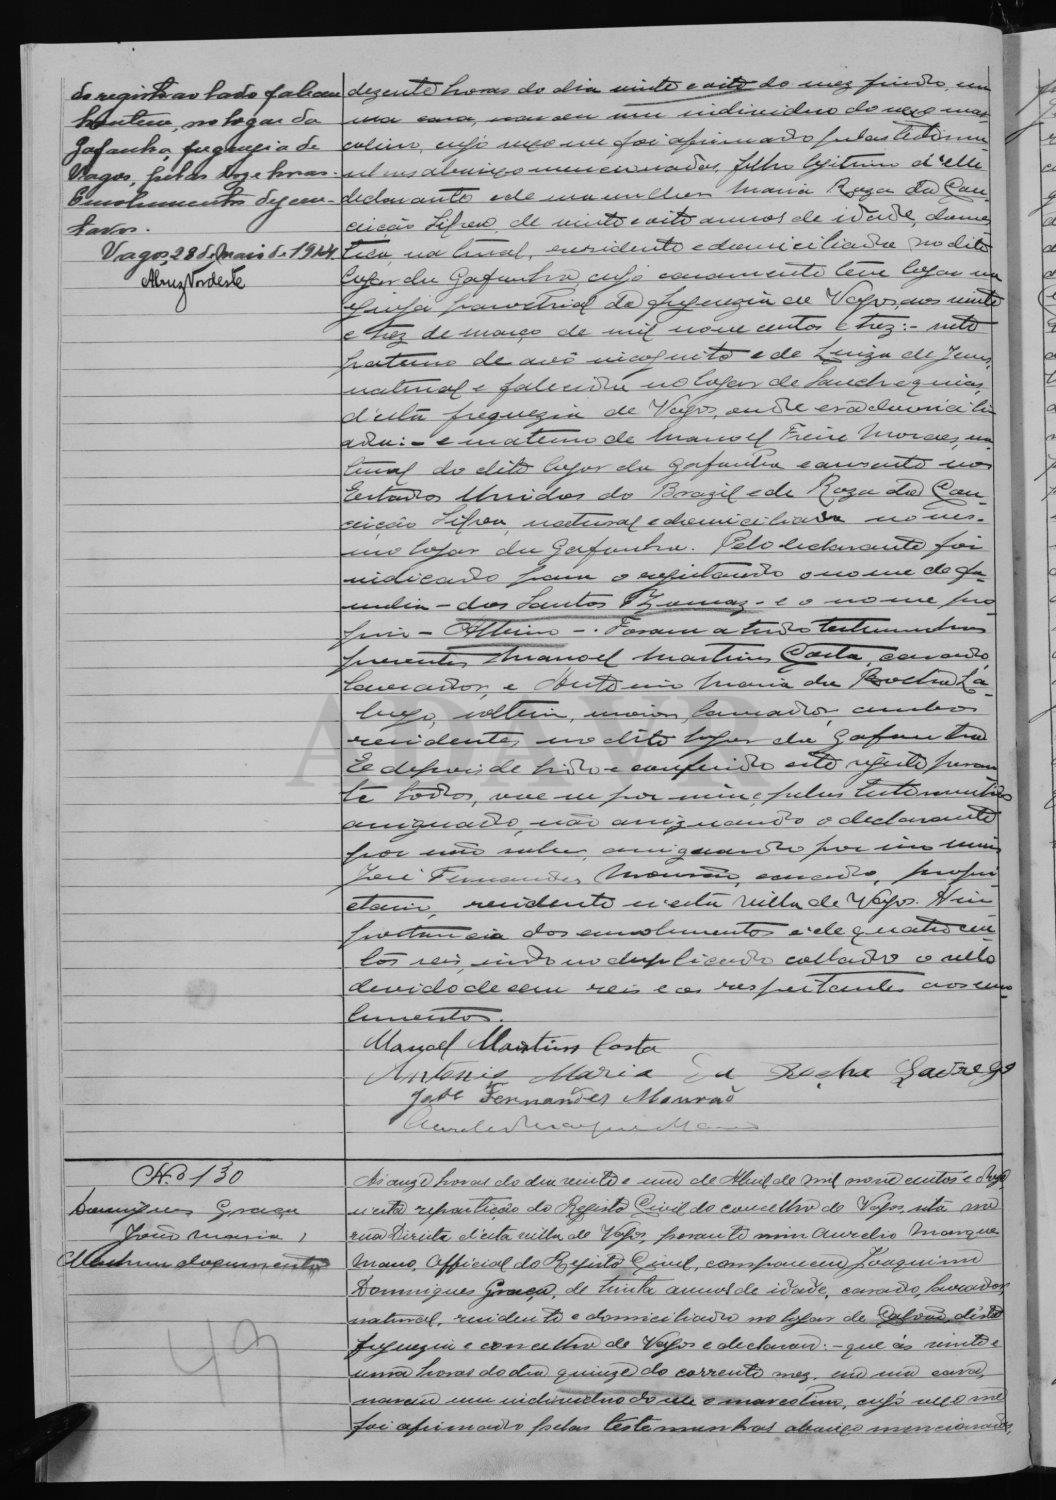 do registo ao lado faleceu
hontem, no logar da
Gafanha, freguezia de
Vagos, pelas doze horas.
Emolumentos dez cen-
tavos.
Vagos, 28 de Maio de 1914.
dezento horas do dia vinte e oito do mez findo, em
uma casa, nasceu um individuo do sexo mas
culino, cujo sexo me foi afirmado pelas testimu
nhas abaixo mencionadas, filho legitimo d'elle
declarante e de sua mulher Maria Roza da Con
ceição, de vinte e oito annos de idade, domes
tica, natural, residente e domiciliada no dito
logar da Gafanha, cujo casamento teve logar na
egreja parochial da freguezia de Vagos, aos vinte
e trez de março de mil nove centos e trez: - neto
paterno de avô incognito e de Luiza de Jesus,
natural e falecida no logar de
d'esta freguezia de Vagos, onde era domicili
ada: - e materno de Manoel Freire Moraes, na
tural do dito logar da Gafanha e ausente nos
Estados Unidos do Brazil e de Roza da Con
ceição, natural e domiciliada no mes-
mo logar da Gafanha. Pelo declarante foi
indicado para o registando o nome de fa-
milia - dos Santos - e o nome pro
prio - - . Foram a tudo testimunhas
presentes Manoel Martins Costa, casado,
lavrador, e Antonio Maria da Rocha La-
solteiro, maior, lavrador, ambos
residentes no dito logar da Gafanha
E depois de lido e conferido este registo peran
te todos, vae ser por mim e pelas testimunhas
assignado, não assignando o declarante
por não saber, assignando por isso
José Fernandes Mourão, casado, propri
etario, residente n'esta villa de Vagos. A im
portancia dos emolumentos é de quatro cen
tos reis, indo no duplicado collado o sello
devido de cem reis e os respeitantes aos emo
lumentos.
Manoel Martins Costa
Antonio Maria da Rocha
José Fernandes Mourão
N.º 130
Domingues Graça
João Maria
Nenhum documento
49
Ás onze horas do dia vinte e um de Abril de mil nove centos e doze,
n'esta repartição do Registo Civil do concelho de Vagos, sita na
rua Direita d'esta villa de Vagos, perante mim Aurelio Marques
Mano, Official do Registo Civil, compareceu Joaquim
Domingues Graça, de trinta annos de idade, casado, lavrador,
natural, residente e domiciliado no logar de d'esta
freguezia e concelho de Vagos e declarou: - que ás vinte e
uma horas do dia quinze do corrente mez, em uma casa,
nasceu um individuo do sexo masculino, cujo sexo me
foi afirmado pelas testemunhas abaixo mencionadas,